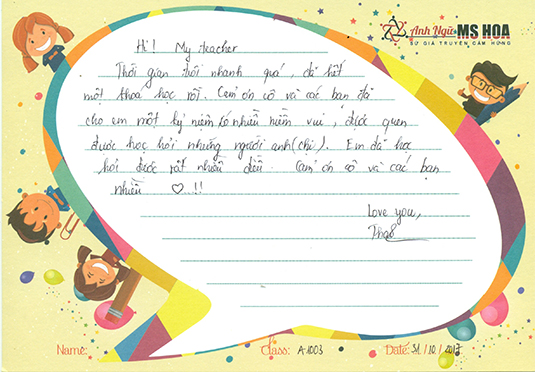 Anh Ngữ MS HOA
SỨ GIẢ TRUYỀN CẢM HỨNG
Hi! My teacher
Thời gian trôi nhanh quá, đã hết
một khoá học rồi. Cảm ơn cô và các bạn đã
cho em một kỷ niệm có nhiều niềm vui, được quen
được học hỏi những người anh (chị). Em đã học
hỏi được rất nhiều điều. Cảm ơn cô và các bạn
nhiều ♡ !!
Love you,
Thảo
Name: Class: A1003 Date: 31/10/2017